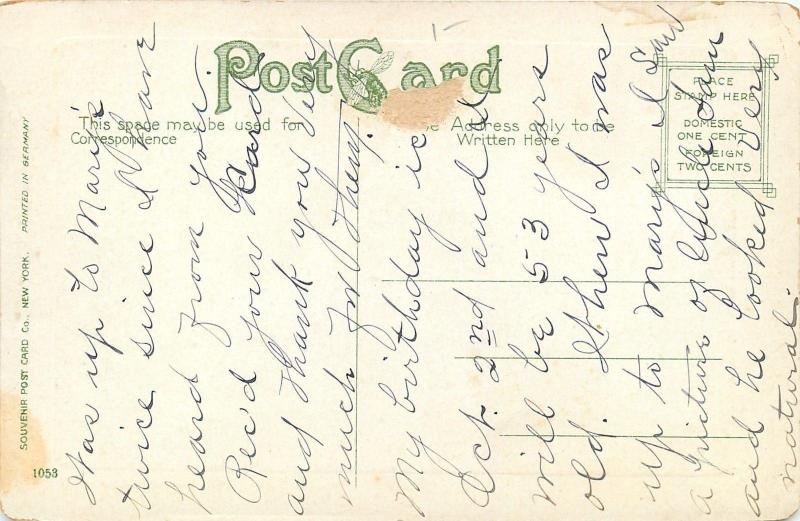 Post Card
This space may be used for
Correspondence
Address only to be
Written Here
PLACE
STAMP HERE
DOMESTIC
ONE CENT
FOREIGN
TWO CENTS
SOUVENIR POST CARD CO., NEW YORK. PRINTED IN GERMANY
1053
Was up to Mary's
twice since I have
heard from you.
Rec'd your Card
and thank you very
much for them.
My birthday is
Oct. 2nd and I
will be 53 years
old. When I was
up to Mary's I saw
a picture of Uncle
and he looked very
natural.